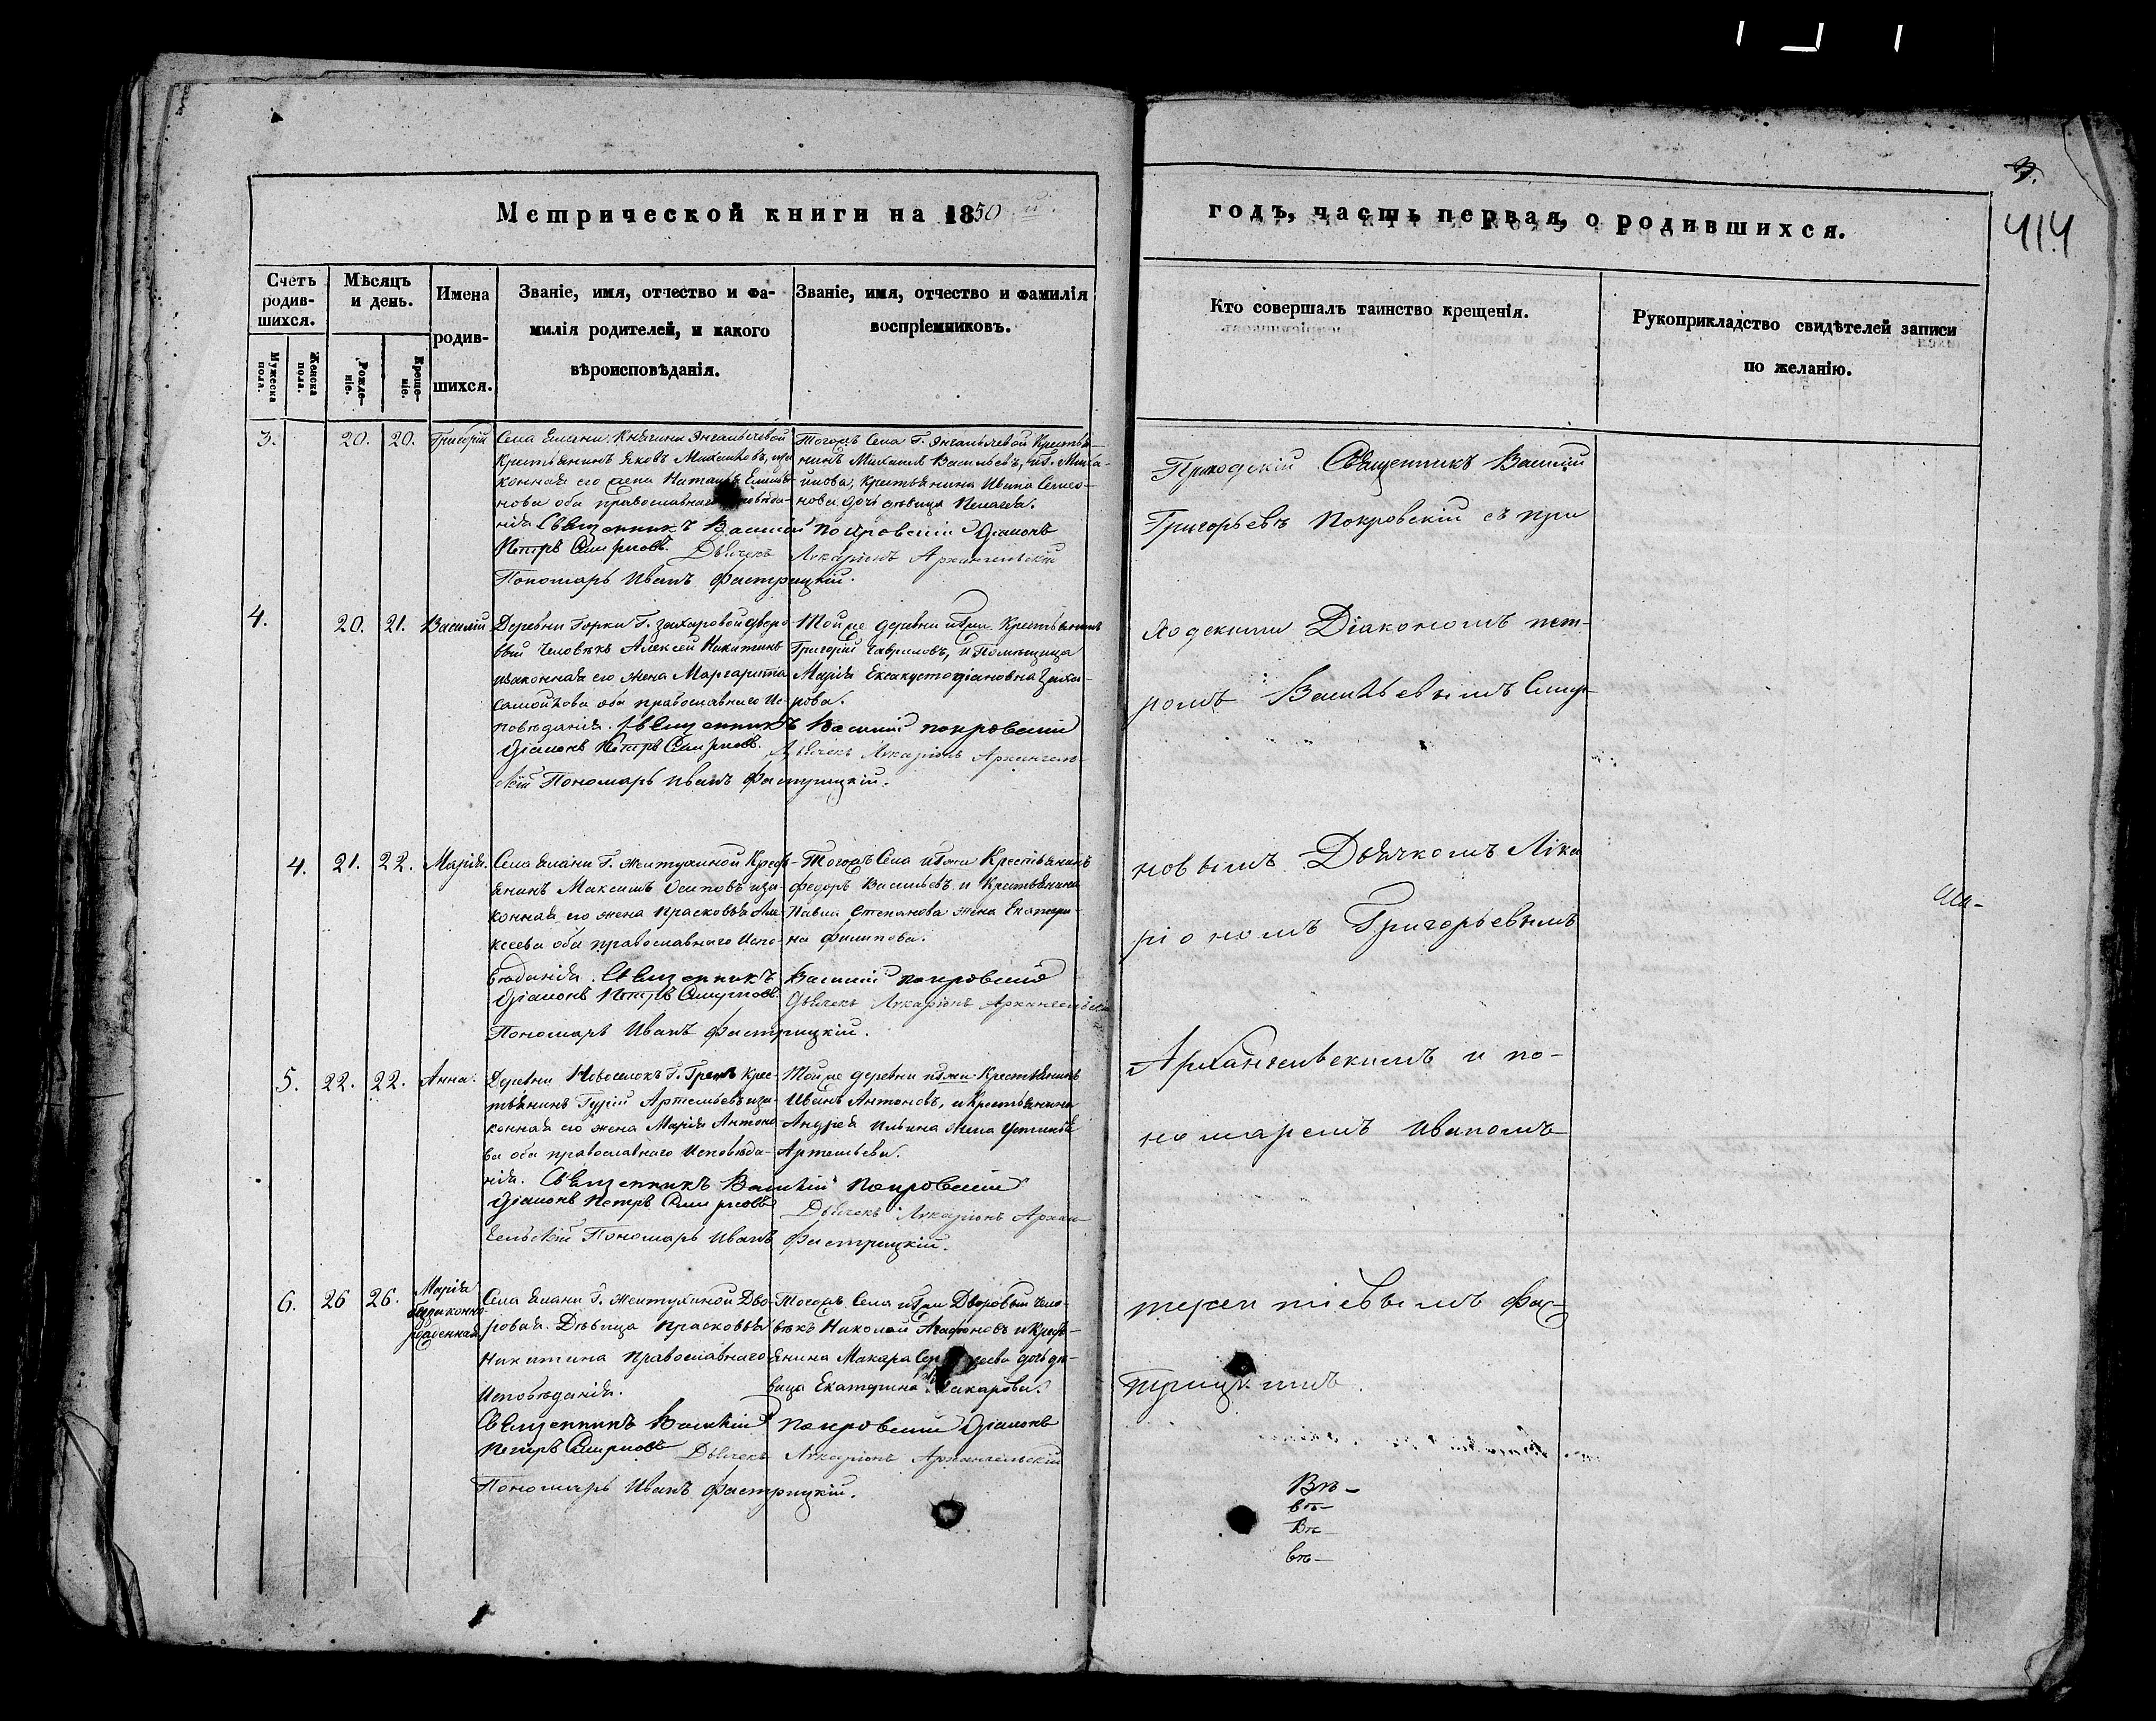 Метрической книги на 1850 й.
Счетъ родив-шихся.
Мѣсяцъ и день.
Имена родив-шихся.
Званіе, имя, отчество и фа-
милія родителей, и какого
вѣроисповѣданія.
Званіе, имя, отчество и фамилія
воспріемниковъ.
Мужеска пола.
Женска пола.
Рожде-ніе.
Креще-ніе.
3. 20. 20. Григорій
Села Елани Княгини Енгалычевой
Крестьянинъ Яковъ
конная его жена
нова оба православнаго
нія Священникъ Василій Покровскій Діаконъ
Петръ Смирновъ. Дьячекъ Лукаріонъ Архангельскій
Пономарь Иванъ Фастрицкій.
Тогожъ Села Г. Енгалычевой Крестья-
нинъ Михаилъ Васильевъ,
Крестьянина Ивана Семео-
нова дочь дѣвица Пелагея.
4. 20. 21. Василій
Деревни Горки Г. Захаровой дворо-
вый человѣкъ Алексей Никитинъ
изаконная его жена Маргарита
Самойлова оба православнаго Ис-
повѣданія. Священникъ Василій Покровскій
Діаконъ Петръ Смирновъ. Дьячекъ Лукаріонъ Архангель-
скій Пономарь Иванъ Фастрицкій.
Тойже деревни Крестьянинъ
Григорій Гавриловъ, и Помѣщица
Марія Ексакустодіановна Заха-
рова.
4. 21. 22. Марія.
Села Елани Г. Желтухиной Кресть-
янинъ Максимъ Осиповъ иза-
конная его жена Прасковья Але-
ксеева оба православнаго Испо-
вѣданія. Священникъ Василій Покровскій
Діаконъ Петръ Смирновъ Дьячекъ Лукаріонъ Архангельскій
Пономарь Иванъ Фастрицкій.
Тогожъ Села Крестьянинъ
Федоръ Васильевъ и Крестьянина
Павла Степанова жена Екатери-
на Филипова.
5. 22. 22. Анна.
Деревни Новоселокъ Г. Крес-
тьянинъ Гурій Артемьевъ иза-
конная его жена Марія Антоно-
ва оба православнаго Исповѣда-
нія. Священникъ Василій Покровскій
Діаконъ Петръ Смирновъ Дьячекъ Лукаріонъ Арханг
ельскій Пономарь Иванъ Фастрицкій.
Тойже деревни Крестьянинъ
Иванъ Антоновъ, и Крестьянина
Андрея Ильина жена Устинья
Артемьева.
6. 26 26. Марія
беззаконно-
рожденная.
Села Елани Г. Желтухиной Дво-
ровая Дѣвица Прасковья
Никитина Православнаго
Исповѣданія.
Священникъ Василій Покровскій Діаконъ
Петръ Смирновъ Дьячекъ Лукаріонъ Архангельскій
Пономарь Иванъ Фастрицкій.
Тогожъ Села Дворовый чело-
вѣкъ Николай Агафоновъ и Кресть-
янина Макара дочь дѣ-
вица Екатерина Макарова.
годъ, часть первая, о родившихся.
414
Кто совершалъ таинство крещенія.
Рукоприкладство свидѣтелей записи
по желанію.
Приходскій Священникъ Василій
Григорьевъ Покровскій съ при
ходскими Діакономъ Пет-
ромъ Васильевымъ Смир-
новымъ Дьячкомъ Лука
ріономъ Григорьевымъ
Архангельскимъ и по-
номаремъ Иваномъ
терентіевымъ Фас-
трицкимъ.